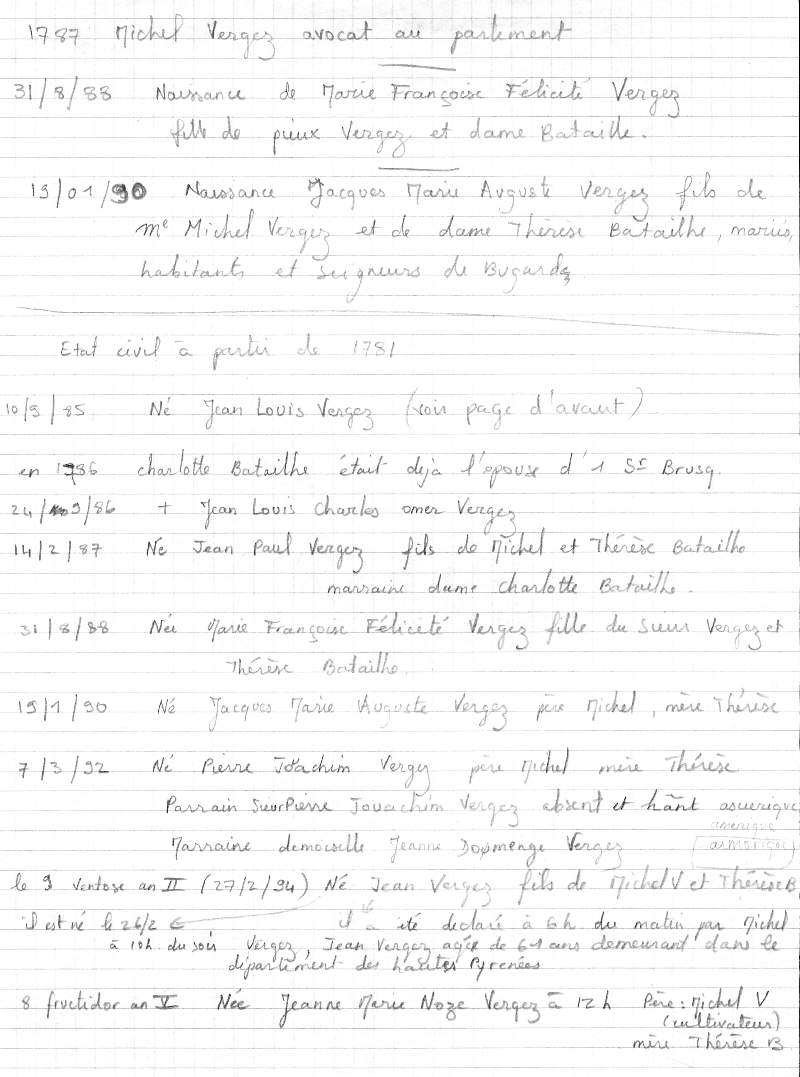 1787 Michel Vergez avocat au parlement
31/8/88 Naissance de Marie Françoise Félicité Vergez
fille de pieux Vergez et dame Bataille.
19/01/90 Naissance Jacques Marie Auguste Vergez fils de
me Michel Vergez et de dame Thérèse Batailhe, mariés,
habitants et seigneurs de Bugard
Etat civil à partir de 1781
10/9/85 Né Jean Louis Vergez (voir page d'avant)
en 1786 charlotte Batailhe était déjà l'épouse d'1 Sr Brusq.
24/9/86 + Jean Louis Charles omer Vergez
14/2/87 Né Jean Paul Vergez fils de Michel et Thérèse Batailhe
marraine dame charlotte Batailhe.
31/8/88 Née Marie Françoise Félicité Vergez fille du Sieur Vergez et
Thérèse Batailhe.
19/1/90 Né Jacques Marie Auguste Vergez père Michel, mère Thérèse
7/3/92 Né Pierre Joachim Vergez père Michel mère Thérèse
Parrain Sieur Pierre Jouachim Vergez absent et hãnt asuerique
amerique
Marraine demoiselle Jeanne Domenge Vergez (armorique)
le 9 Ventose an II (27/2/94) Né Jean Vergez fils de Michel V et Thérèse B
il est né le 26/2 ← il a été déclaré à 6h du matin par Michel
à 10h du soir Vergez, Jean Vergez agée de 61 ans demeurant dans le
département des hautes Pyrenées
8 fructidor an V Née Jeanne Marie Noze Vergez à 12h Père : Michel V
(cultivateur)
mère Thérèse B